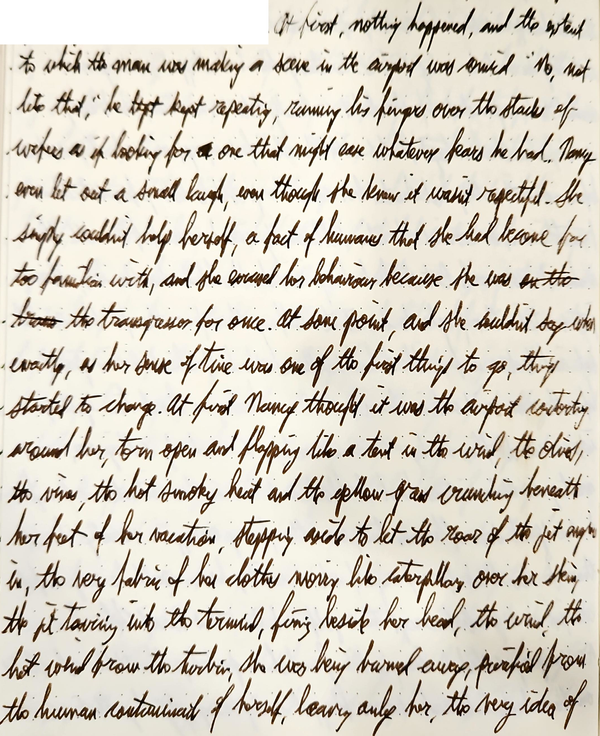 At first, nothing happened, and the extent
to which the man was making a scene in the airport was comical. "No, not
like that," he kept kept repeating, running his fingers over the stacks of
wafers as if looking for a one that might ease whatever fears he had. Nancy
even let out a small laugh, even though she knew it wasn't respectful. She
simply couldn't help herself, a fact of humans that she had become far
too familiar with, and she excused her behaviour because she was on the
the transgressor for once. At some point, and she couldn't say when
exactly, as her sense of time was one of the first things to go, things
started to change. At first Nancy thought it was the airport contorting
around her, torn open and flapping like a tent in the wind, the olives,
the vines, the hot smoky heat and the yellow grass crunching beneath
her feet of her vacation, stepping aside to let the roar of the jet engine
in, the very fabric of her clothes moving like caterpillars over her skin,
the jet taxiing into the terminal, firing beside her head, the wind, the
hot wind from the turbine, she was being burned away, purified from
the human contaminant of herself, leaving only her, the very idea of